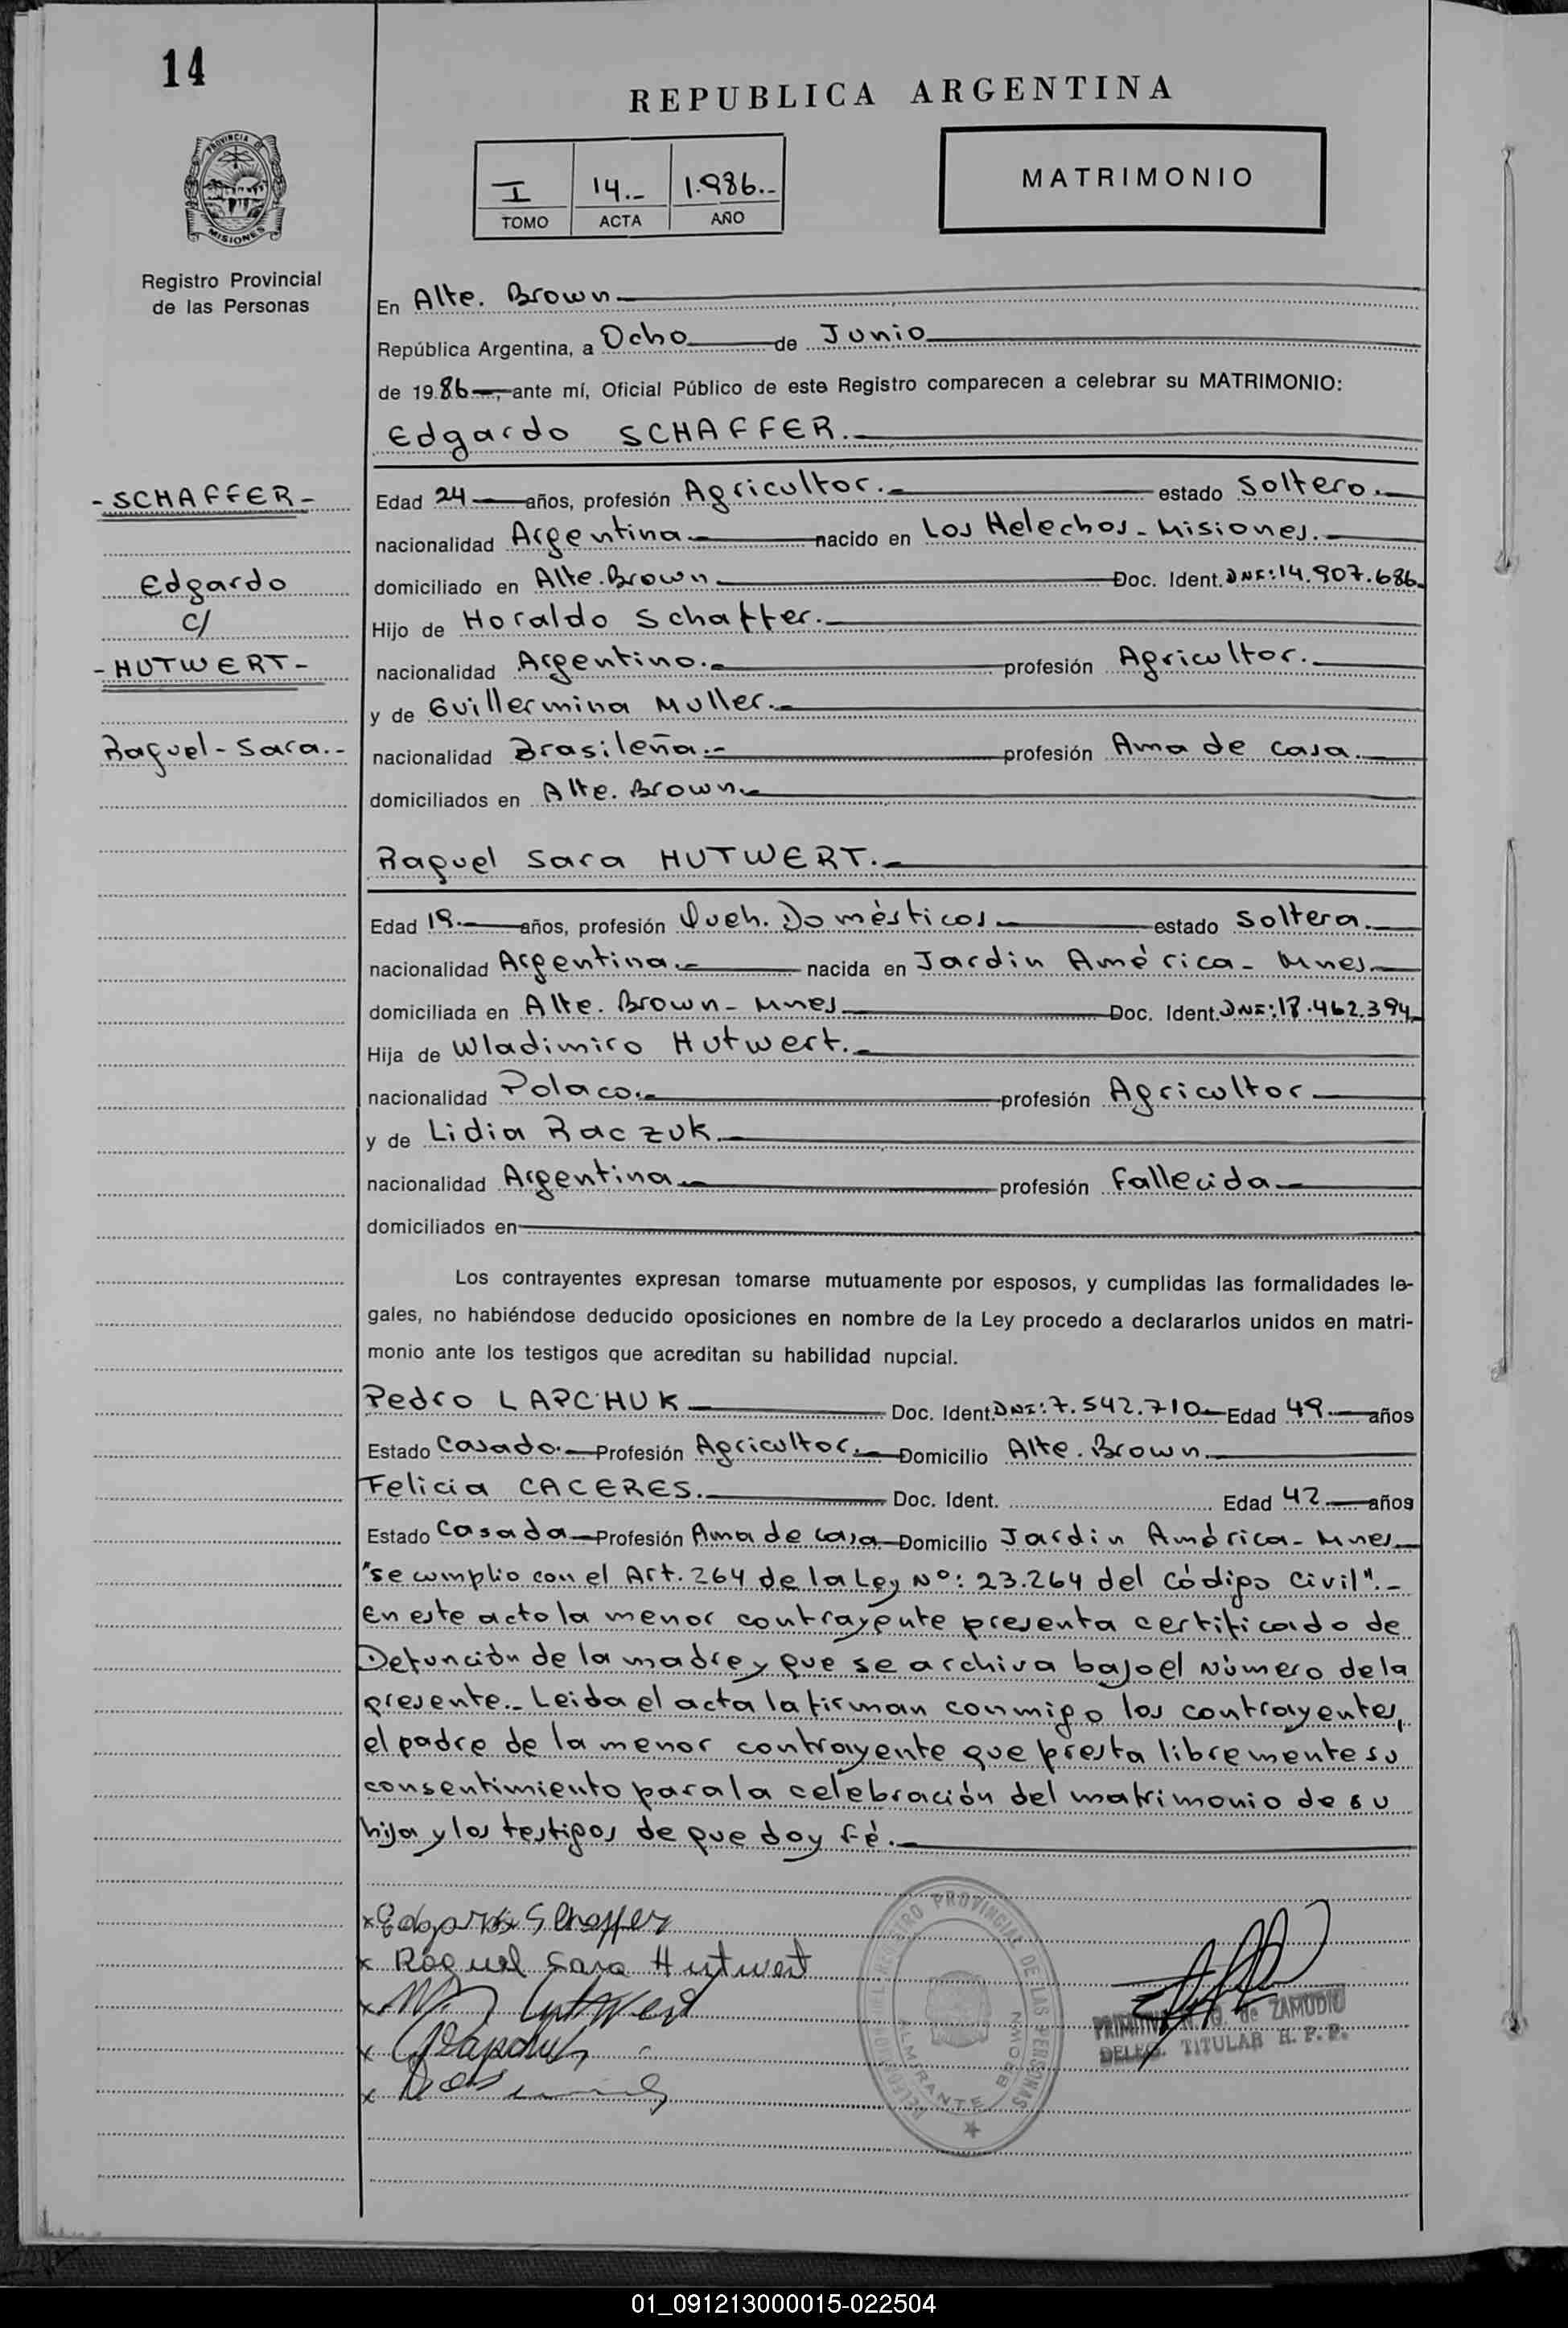 14
REPUBLICA ARGENTINA
PROVINCIA DE
MISIONES
I 14.- 1.986.-
TOMO ACTA AÑO
MATRIMONIO
Registro Provincial
de las Personas
En Alte. Brown
República Argentina, a Ocho de Junio
de 1986, ante mí, Oficial Público de este Registro comparecen a celebrar su MATRIMONIO:
Edgardo SCHAFFER.
- SCHAFFER -
Edgardo
C/
- HUTWERT -
Raquel - Sara.-
Edad 24 años, profesión Agricultor. estado Soltero.
nacionalidad Argentina nacido en Los Helechos - Misiones.
domiciliado en Alte. Brown Doc. Ident. DNI: 14.907.686
Hijo de Horaldo Schaffer.
nacionalidad Argentino. profesión Agricultor.
y de Guillermina Muller.
nacionalidad Brasileña. profesión Ama de casa.
domiciliados en Alte. Brown
Raquel Sara HUTWERT.
Edad 19. años, profesión Queh. Domésticos estado Soltera.
nacionalidad Argentina nacida en Jardin América - Mnes
domiciliada en Alte. Brown - Mnes Doc. Ident. DNI: 18.462.394
Hija de Wladimiro Hutwert.
nacionalidad Polaco. profesión Agricultor
y de Lidia Raczuk
nacionalidad Argentina profesión Fallecida
domiciliados en
Los contrayentes expresan tomarse mutuamente por esposos, y cumplidas las formalidades le-
gales, no habiéndose deducido oposiciones en nombre de la Ley procedo a declararlos unidos en matri-
monio ante los testigos que acreditan su habilidad nupcial.
Pedro LAPCHUK Doc. Ident. DNI: 7.542.710 Edad 49 años
Estado Casado. Profesión Agricultor. Domicilio Alte. Brown
Felicia CACERES. Doc. Ident. Edad 42 años
Estado Casada Profesión Ama de casa Domicilio Jardin América - Mnes
"se cumplio con el Art. 264 de la Ley Nº: 23.264 del Código Civil".-
En este acto la menor contrayente presenta certificado de
Defunción de la madre y que se archiva bajo el Número de la
presente.- Leida el acta la firman conmigo los contrayentes,
el padre de la menor contrayente que presta libremente su
consentimiento para la celebración del matrimonio de su
hija y los testigos de que doy Fé.
x Edgardo Schaffer
x Raquel Sara Hutwert
x Hutwert
x
x
REGISTRO PROVINCIAL DE LAS PERSONAS
ALMIRANTE BROWN
de ZAMUDIO
DELEG. TITULAR R. P. P.
01_091213000015-022504